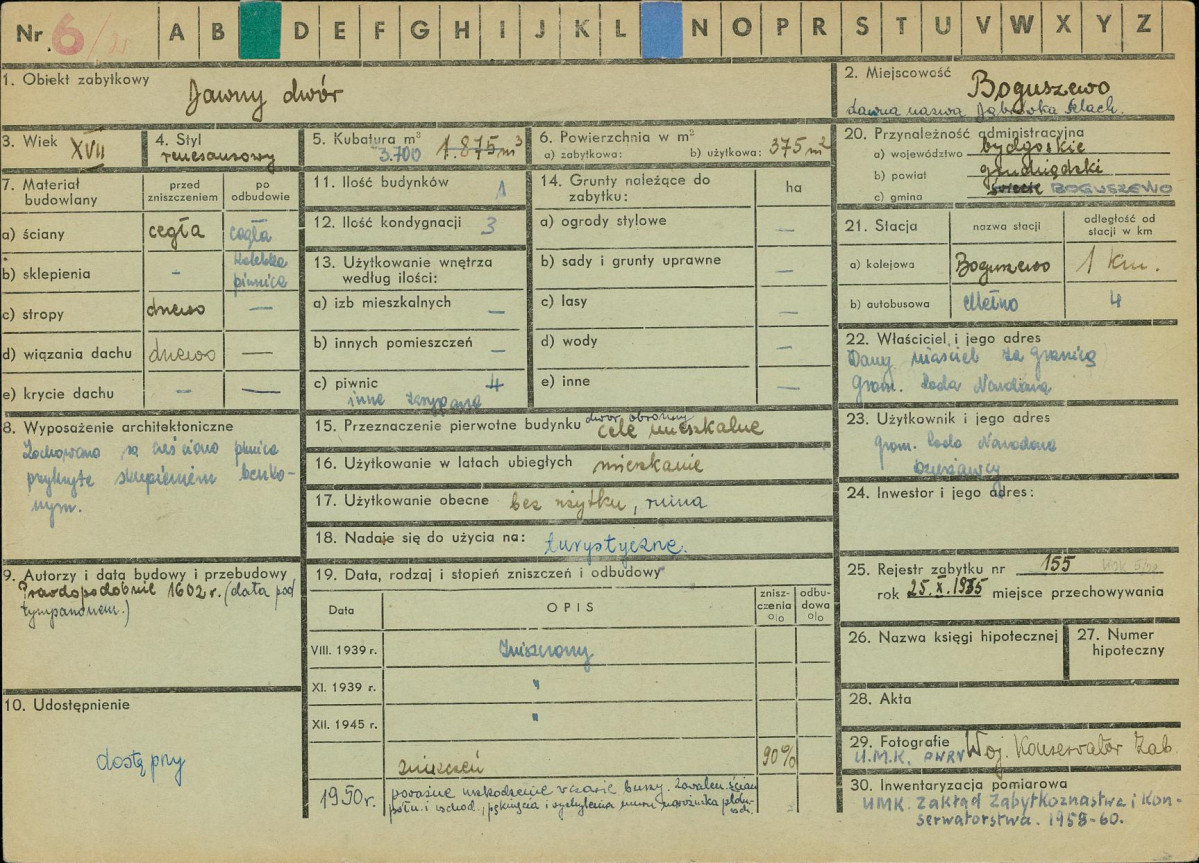 Nr. 6
A B D E F G H I J K L N O P R S T U V W X Y Z
1. Obiekt zabytkowy
dawny dwór
2. Miejscowość Boguszewo
dawna nazwa Dąbrówka Szlach.
3. Wiek XVII
4. Styl
renesansowy
5. Kubatura m³
3.700 1.875 m³
6. Powierzchnia w m²
a) zabytkowa: b) użytkowa: 375 m²
20. Przynależność administracyjna
a) województwo bydgoskie
b) powiat grudziądzki
c) gmina BOGUSZEWO
7. Materiał budowlany
przed zniszczeniem
po odbudowie
a) ściany cegła cegła
b) sklepienia - kolebka
piwnica
c) stropy drewo —
d) wiązania dachu drewo —
e) krycie dachu - —
11. Ilość budynków 1
12. Ilość kondygnacji 3
13. Użytkowanie wnętrza
według ilości:
a) izb mieszkalnych —
b) innych pomieszczeń —
c) piwnic 4
inne zasypane
14. Grunty należące do
zabytku:
ha
a) ogrody stylowe —
b) sady i grunty uprawne —
c) lasy —
d) wody —
e) inne —
21. Stacja
nazwa stacji
odległość od
stacji w km
a) kolejowa Boguszewo 1 km.
b) autobusowa Mełno 4
22. Właściciel i jego adres
Dawny właściciel za granicą
Grom. Rada Narodowa
8. Wyposażenie architektoniczne
Zachowane są częściowo piwnice
przykryte sklepieniem beczko-
wym.
15. Przeznaczenie pierwotne budynku dwór obronny
cele mieszkalne
16. Użytkowanie w latach ubiegłych mieszkanie
17. Użytkowanie obecne bez użytku, ruina
18. Nadaje się do użycia na: turystyczne.
23. Użytkownik i jego adres
Grom. Rada Narodowa
Dzierżawcy
24. Inwestor i jego adres:
9. Autorzy i data budowy i przebudowy
Prawdopodobnie 1602 r. (data pod
tympanonem.)
19. Data, rodzaj i stopień zniszczeń i odbudowy
Data
OPIS
znisz-
czenia
o/o
odbu-
dowa
o/o
VIII. 1939 r. Zniszczony
XI. 1939 r. "
XII. 1945 r. "
zniszczeń 90%
1950 r. poważne uszkodzenie w czasie burzy. Zawalen. ścian
półn. i wschod., pęknięcia i wychylenia muru narożnika płdn-
wsch.
25. Rejestr zabytku nr 155
rok 25.X.1935 miejsce przechowywania
26. Nazwa księgi hipotecznej
27. Numer
hipoteczny
10. Udostępnienie
dostępny
28. Akta
29. Fotografie Woj. Konserwator Zab.
U.M.K. PWRN
30. Inwentaryzacja pomiarowa
UMK. Zakład Zabytkoznastwa i Kon-
serwatorstwa. 1958-60.